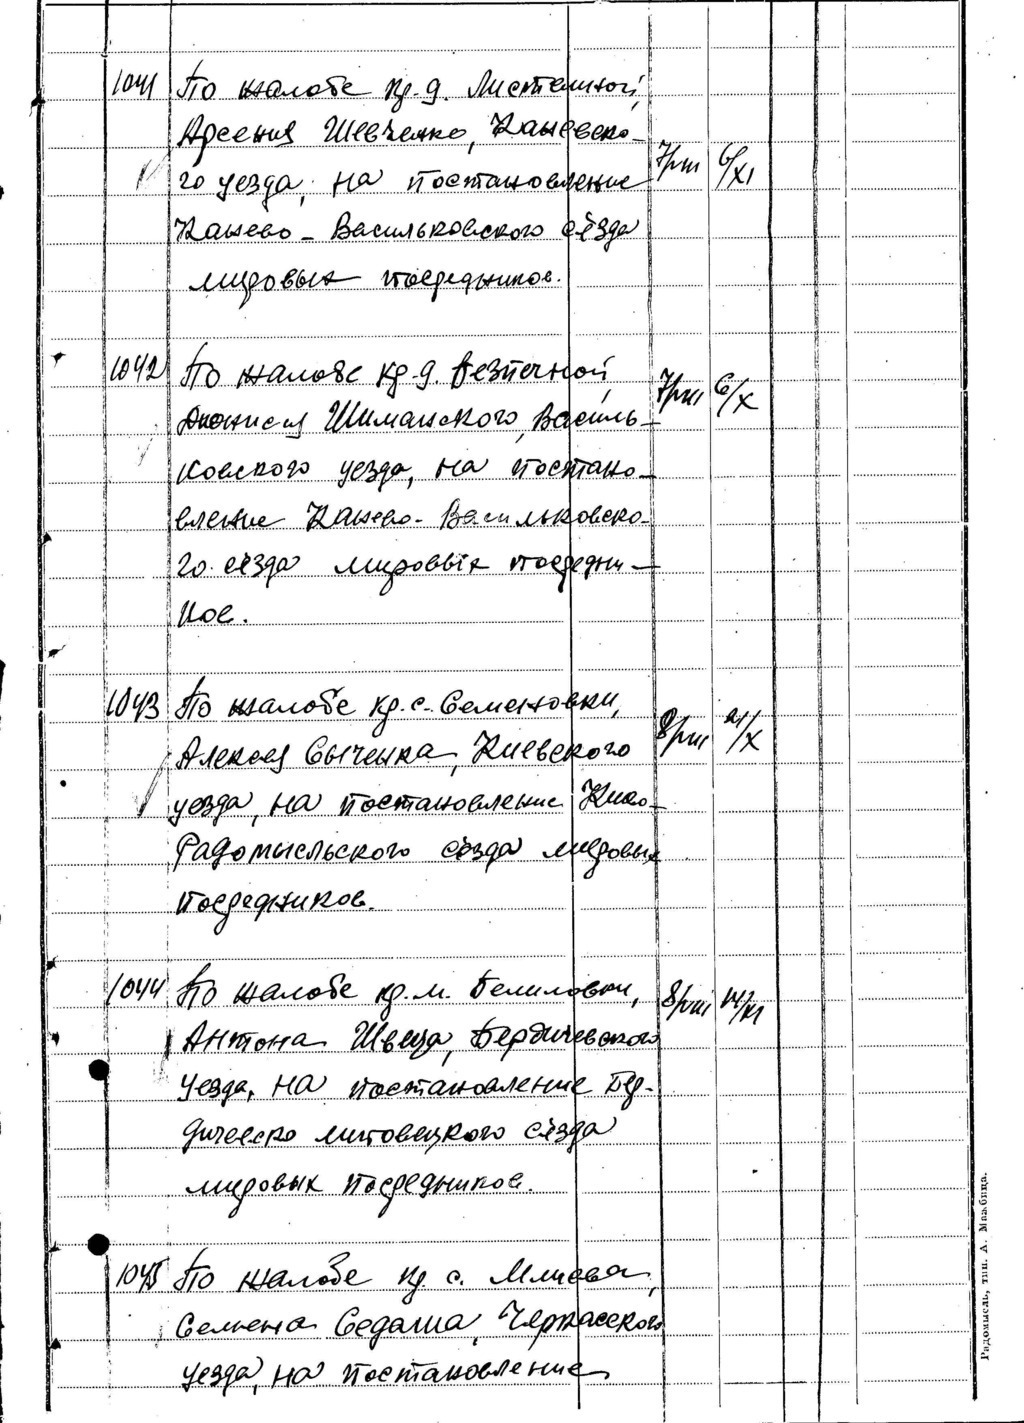 1041 По жалобе кр. д. Листвиной,
Арсения Шевченко, Каневско-
го уезда, на постановление 7/VIII 6/XI
Канево-Васильковского съезда
мировых посредников.
1042 По жалобе кр. д. Безпечной, 7/VIII 6/X
Дионисия Шиманского, Василь-
ковского уезда, на постано-
вление Канево-Васильковско-
го съезда мировых посредни-
ков.
1043 По жалобе кр. с. Семеновки,
Алексея Сыченка, Киевского 8/VIII 21/X
уезда, на постановление Киево-
Радомысльского съезда мировых
посредников.
1044 По жалобе кр. м. Белиловки, 8/VIII 14/XI
Антона Швеца, Бердичевского
уезда, на постановление Бер-
дичевско липовецкого съезда
мировых посредников.
1045 По жалобе кр. с. Млиева,
Семена Седаша, Черкасского
уезда, на постановление
Радомысль, тип. А. Мажбица.